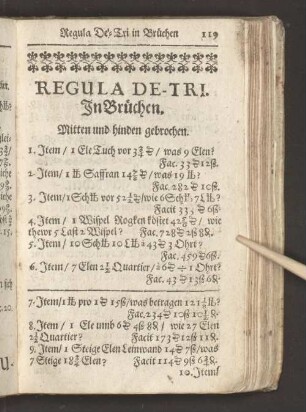 Regula De-Tri in Brüchen 119
REGULA DE-TRI.
In Brüchen.
Mitten und hinden gebrochen.
1. Item / 1 Ele Tuch vor 3¾ / was 9 Elen?
Fac. 33 12ß.
2. Item / 1 ℔ Saffran 14 / was 19 ℔?
Fac. 282 10ß.
3. Item / 1 Sch℔ vor 52½ / wie 6 Sch℔ 7 L℔?
Facit 33 6ß.
4. Item / 1 Wispel Rogken köstet 42 / wie
thewr 5 Last 2 Wispel? Fac. 728 2ß 8
5. Item / 10 Sch℔ 10 L℔ à 43 3 Ohrt?
Fac. 459 6ß.
6. Item / 7 Elen 2½ Quartier / à 6 1 Ohrt?
Fac. 43 13ß 6
7. Item / 1 ℔ pro 1 15ß / was betragen 121½ ℔?
Fac. 234 10ß 10½
8. Item / 1 Ele umb 6 4ß 8 / wie 27 Elen
2½ Quartier? Facit 173 12ß 11
9. Item / 1 Steige Elen Leinwand 14 7ß / was
7 Steige 18¾ Elen? Facit 114 9ß 6¾
10. Item /